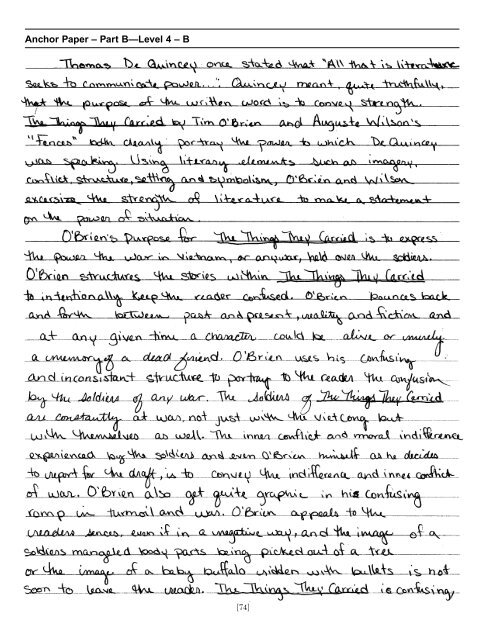 Anchor Paper – Part B—Level 4 – B
Thomas De Quincey once stated that "All that is literature
seeks to communicate power...". Quincey meant, quite truthfully,
that the purpose of the written word is to convey strength.
The Things They Carried by Tim O'Brien and Auguste Wilson's
"Fences" both clearly portray the power to which De Quincey
was speaking. Using literary elements such as imagery,
conflict, structure, setting and symbolism, O'Brien and Wilson
excersize the strength of literature to make a statement
on the power of situation.
O'Brien's purpose for The Things They Carried is to express
the power the war in Vietnam, or anywar, held over the soldiers.
O'Brien structures the stories within The Things They Carried
to intentionally keep the reader confused. O'Brien bounces back
and forth between past and present, reality and fiction and
at any given time a character could be alive or merely
a memory of a dead friend. O'Brien uses his confusing
and inconsistant structure to portray to the reader the confusion
by the soldiers of any war. The soldiers of The Things They Carried
are constantly at war, not just with the Vietcong but
with themselves as well. The inner conflict and moral indifference
experienced by the soldiers and even O'Brien himself as he decides
to report for the draft, is to convey the indifference and inner conflict
of war. O'Brien also get quite graphic in his confusing
romp in turmoil and war. O'Brien appeals to the
readers sences, even if in a negative way, and the image of a
soldiers mangeled body parts being picked out of a tree
or the image of a baby buffalo ridden with bullets is not
soon to leave the reader. The Things They Carried is confusing,
[74]